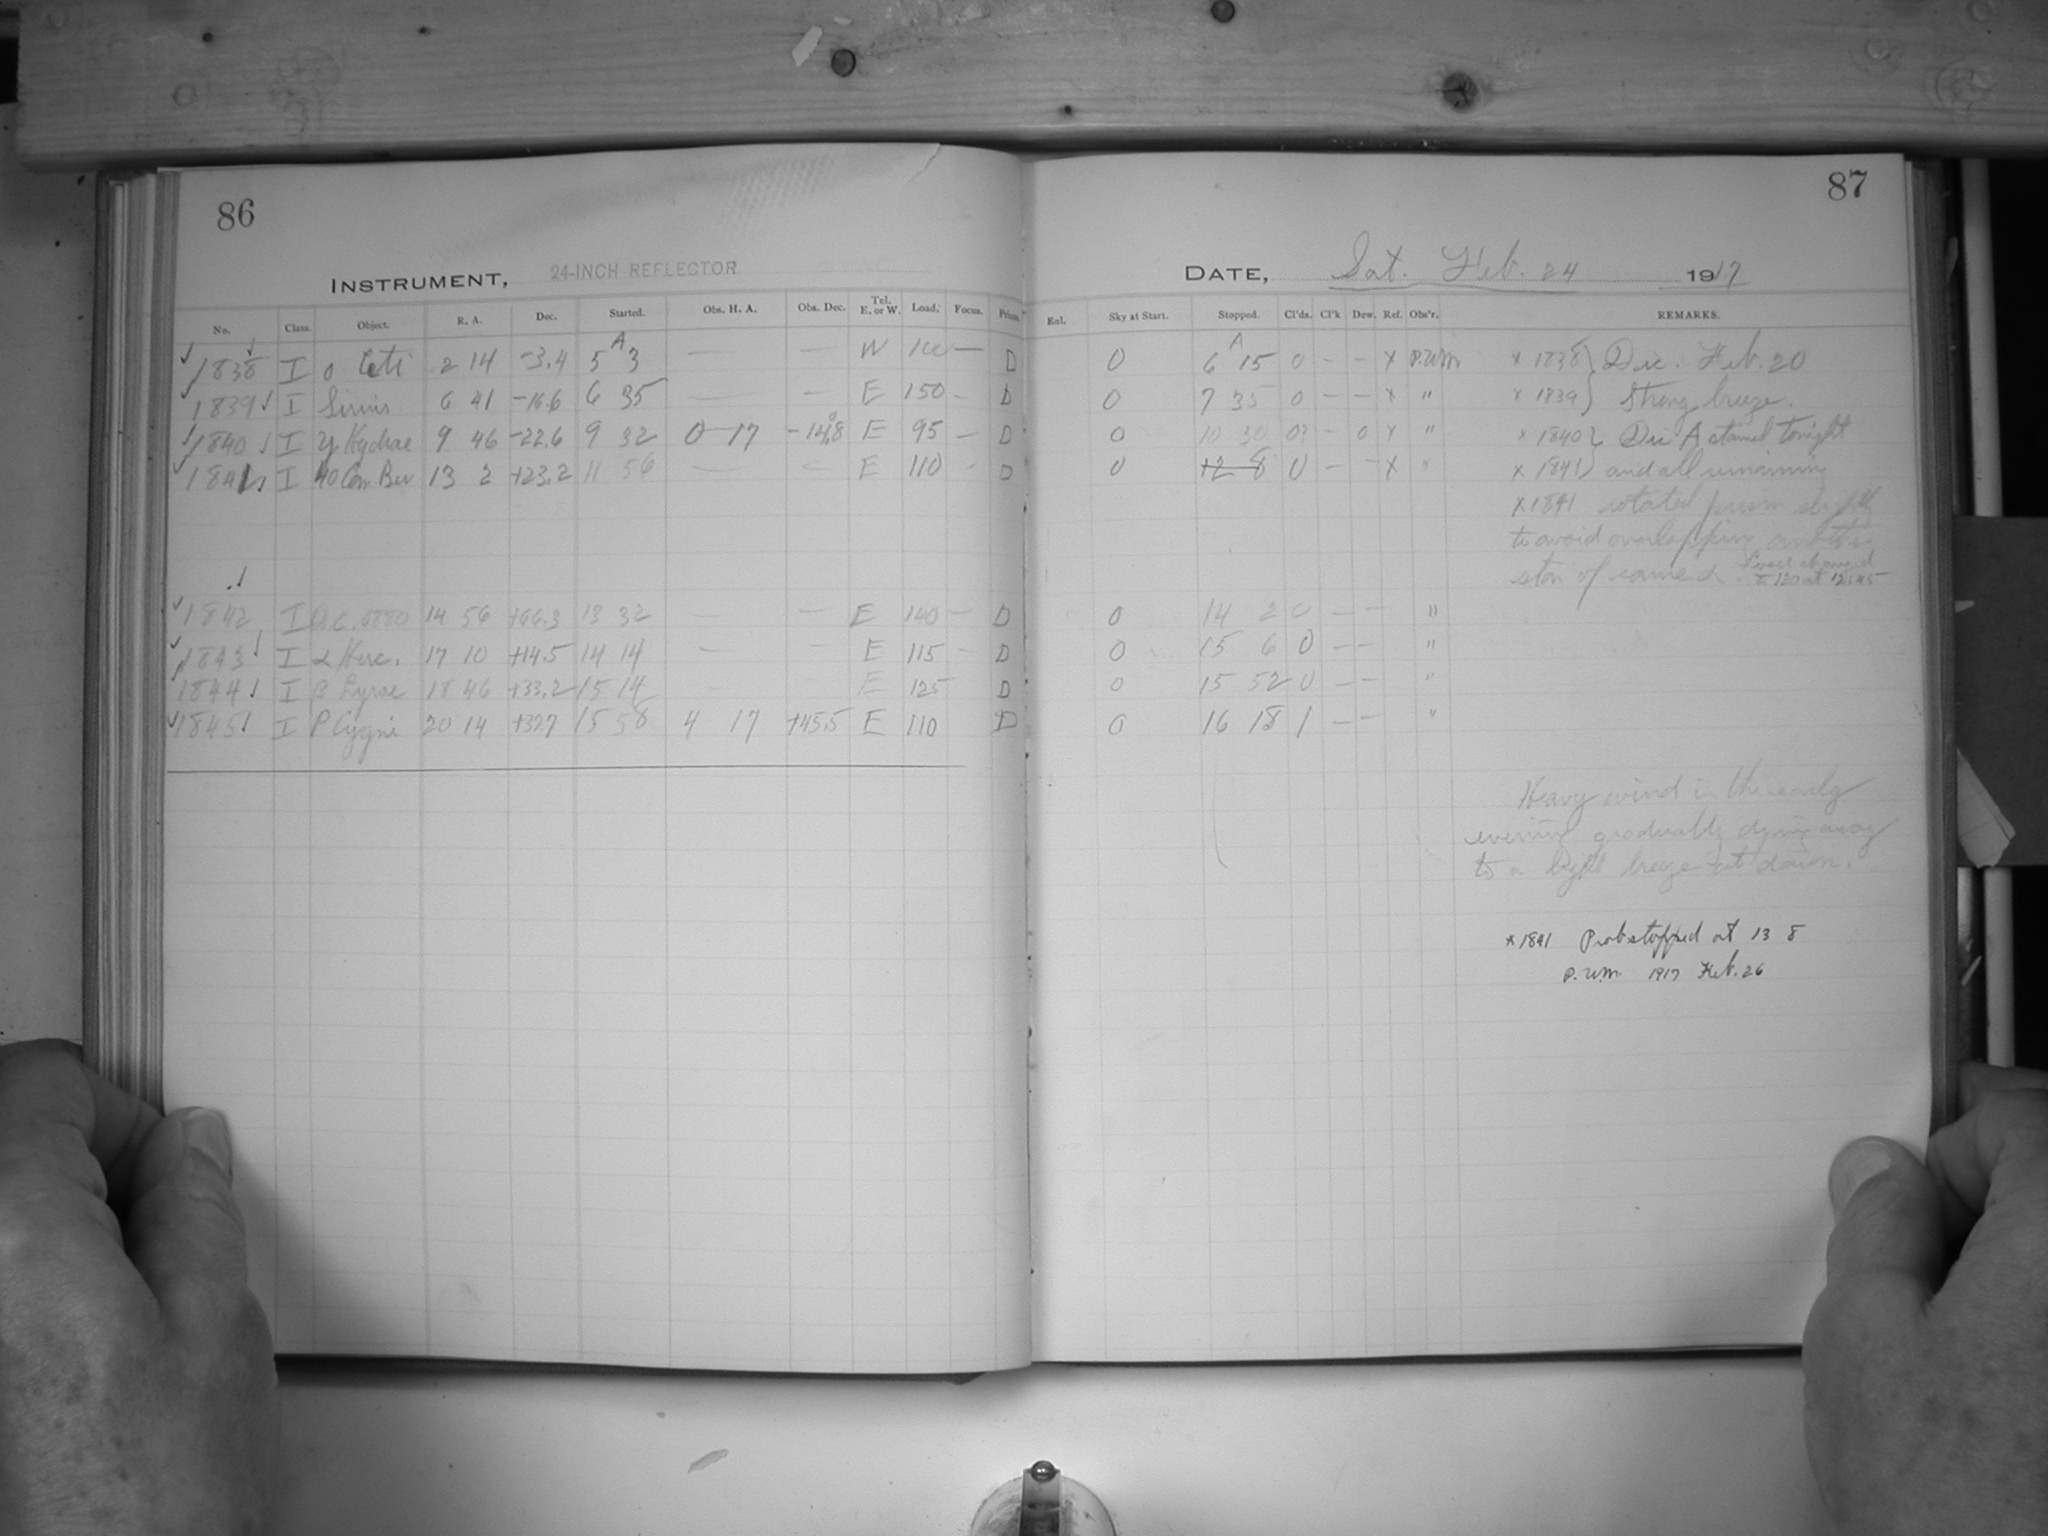 86
INSTRUMENT, 24-INCH REFLECTOR
No. Class. Object. R. A. Dec. Started. Obs. H. A. Obs. Dec. Tel. E. or W. Load. Focus. Prism.
1838 I o Ceti 2 14 -3.4 5 A 3 — — W — D
1839 I Sirius 6 41 -16.6 6 35 — — E 150 - D
1840 I y Hydrae 9 46 -22.6 9 32 0 17 -14.8 E 95 - D
1841 I 40 Com Ber 13 2 +23.2 11 56 — — E 110 - D
1842 I 14 56 +66.3 13 32 — — E 140 - D
1843 I α Herc. 17 10 +14.5 14 14 - - E 115 - D
1844 I β Lyrae 18 46 +33.2 15 14 - - E 125 D
1845 I P Cygni 20 14 +37.7 15 58 4 17 +45.5 E 110 D
87
DATE, Sat. Feb. 24 1917
Enl. Sky at Start. Stopped. Cl'ds. Cl'k Dew. Ref. Obs'r. REMARKS.
0 6 A 15 0 - - x P.W.M. x 1838 } Dec. Feb. 20
0 7 35 0 - - x " x 1839 } Strong breeze.
0 10 50 0? - 0 x " x 1840 } Dec A tonight
0 12 8 0 - - x " x 1841 } and all remaining
x 1841 rotated prism slightly
to avoid overlapping another
star of same α. Load changed
to 120 at 12h45
0 14 2 0 - - "
0 15 6 0 - - "
0 15 52 0 - - "
0 16 18 1 - - "
Heavy wind in the early
evening gradually dying away
to a light breeze at dawn.
x 1841 Prob stopped at 13 8
P.W.M. 1917 Feb. 26